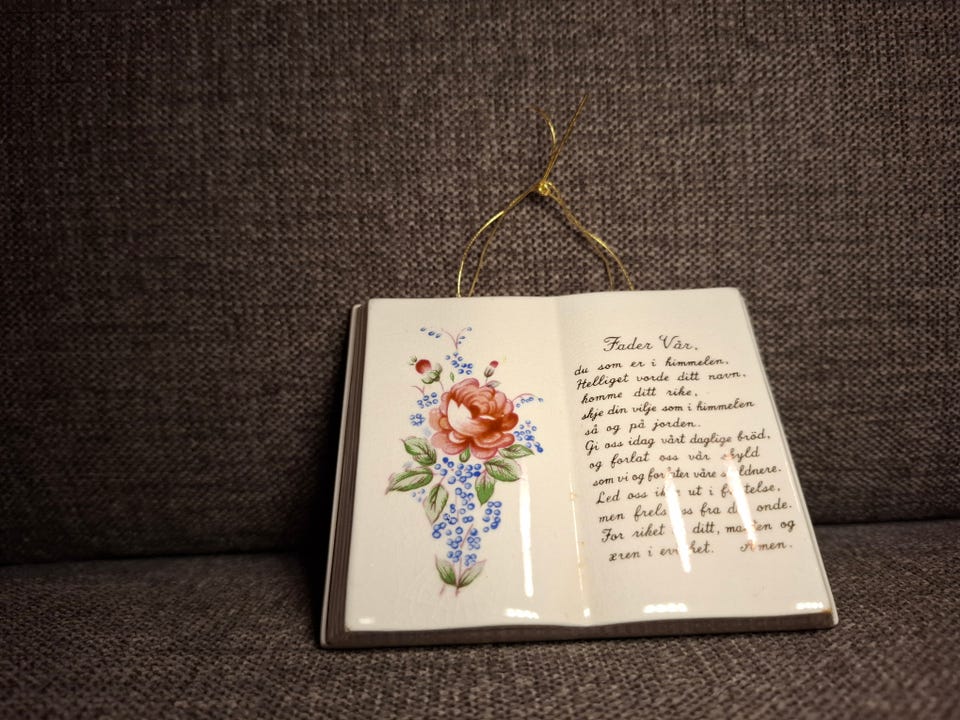 Fader Vår,
du som er i himmelen,
Helliget vorde ditt navn,
komme ditt rike,
skje din vilje som i himmelen
så og på jorden.
Gi oss idag vårt daglige bröd,
og forlat oss vår skyld
som vi og forlater våre skyldnere.
Led oss ikke ut i fristelse,
men frels oss fra det onde.
For riket er ditt, makten og
æren i evighet. Amen.